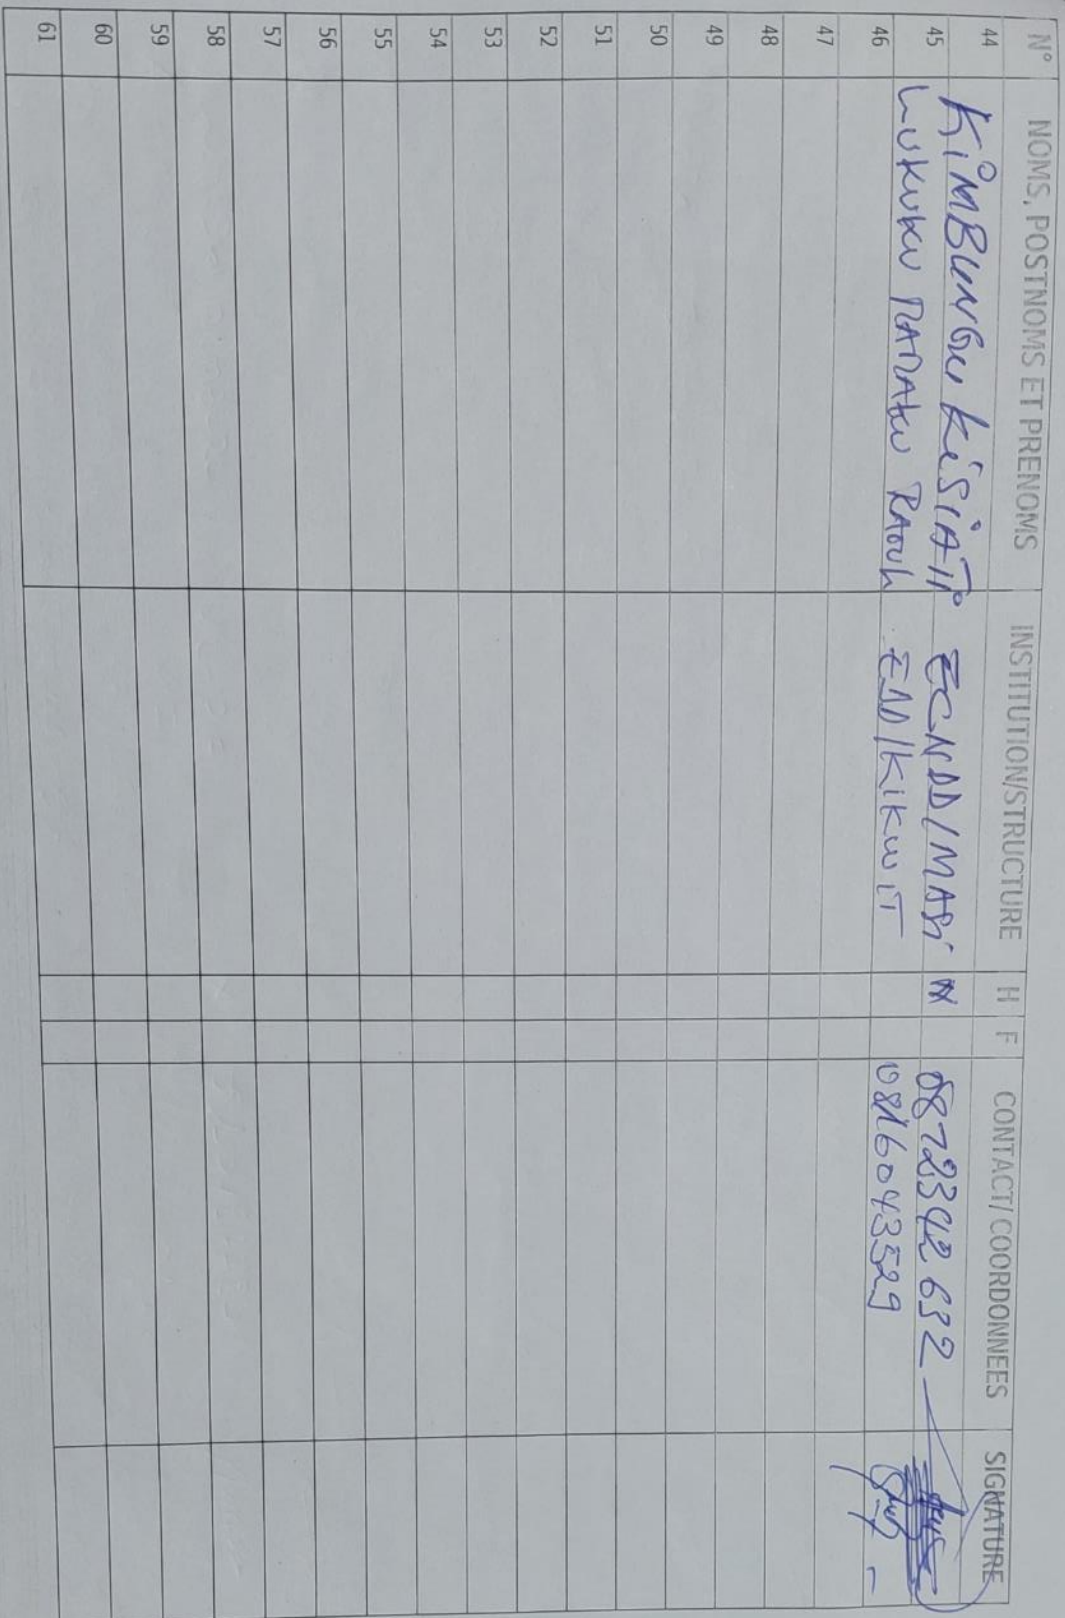 N° NOMS, POSTNOMS ET PRENOMS INSTITUTION/STRUCTURE H F CONTACT/ COORDONNEES SIGNATURE
44 KiMBUNGU KiSiATi ECNDD/MASi 0872342632
45
46 LUKUKU RAOUL EDD/KIKWIT 0816043529
47
48
49
50
51
52
53
54
55
56
57
58
59
60
61